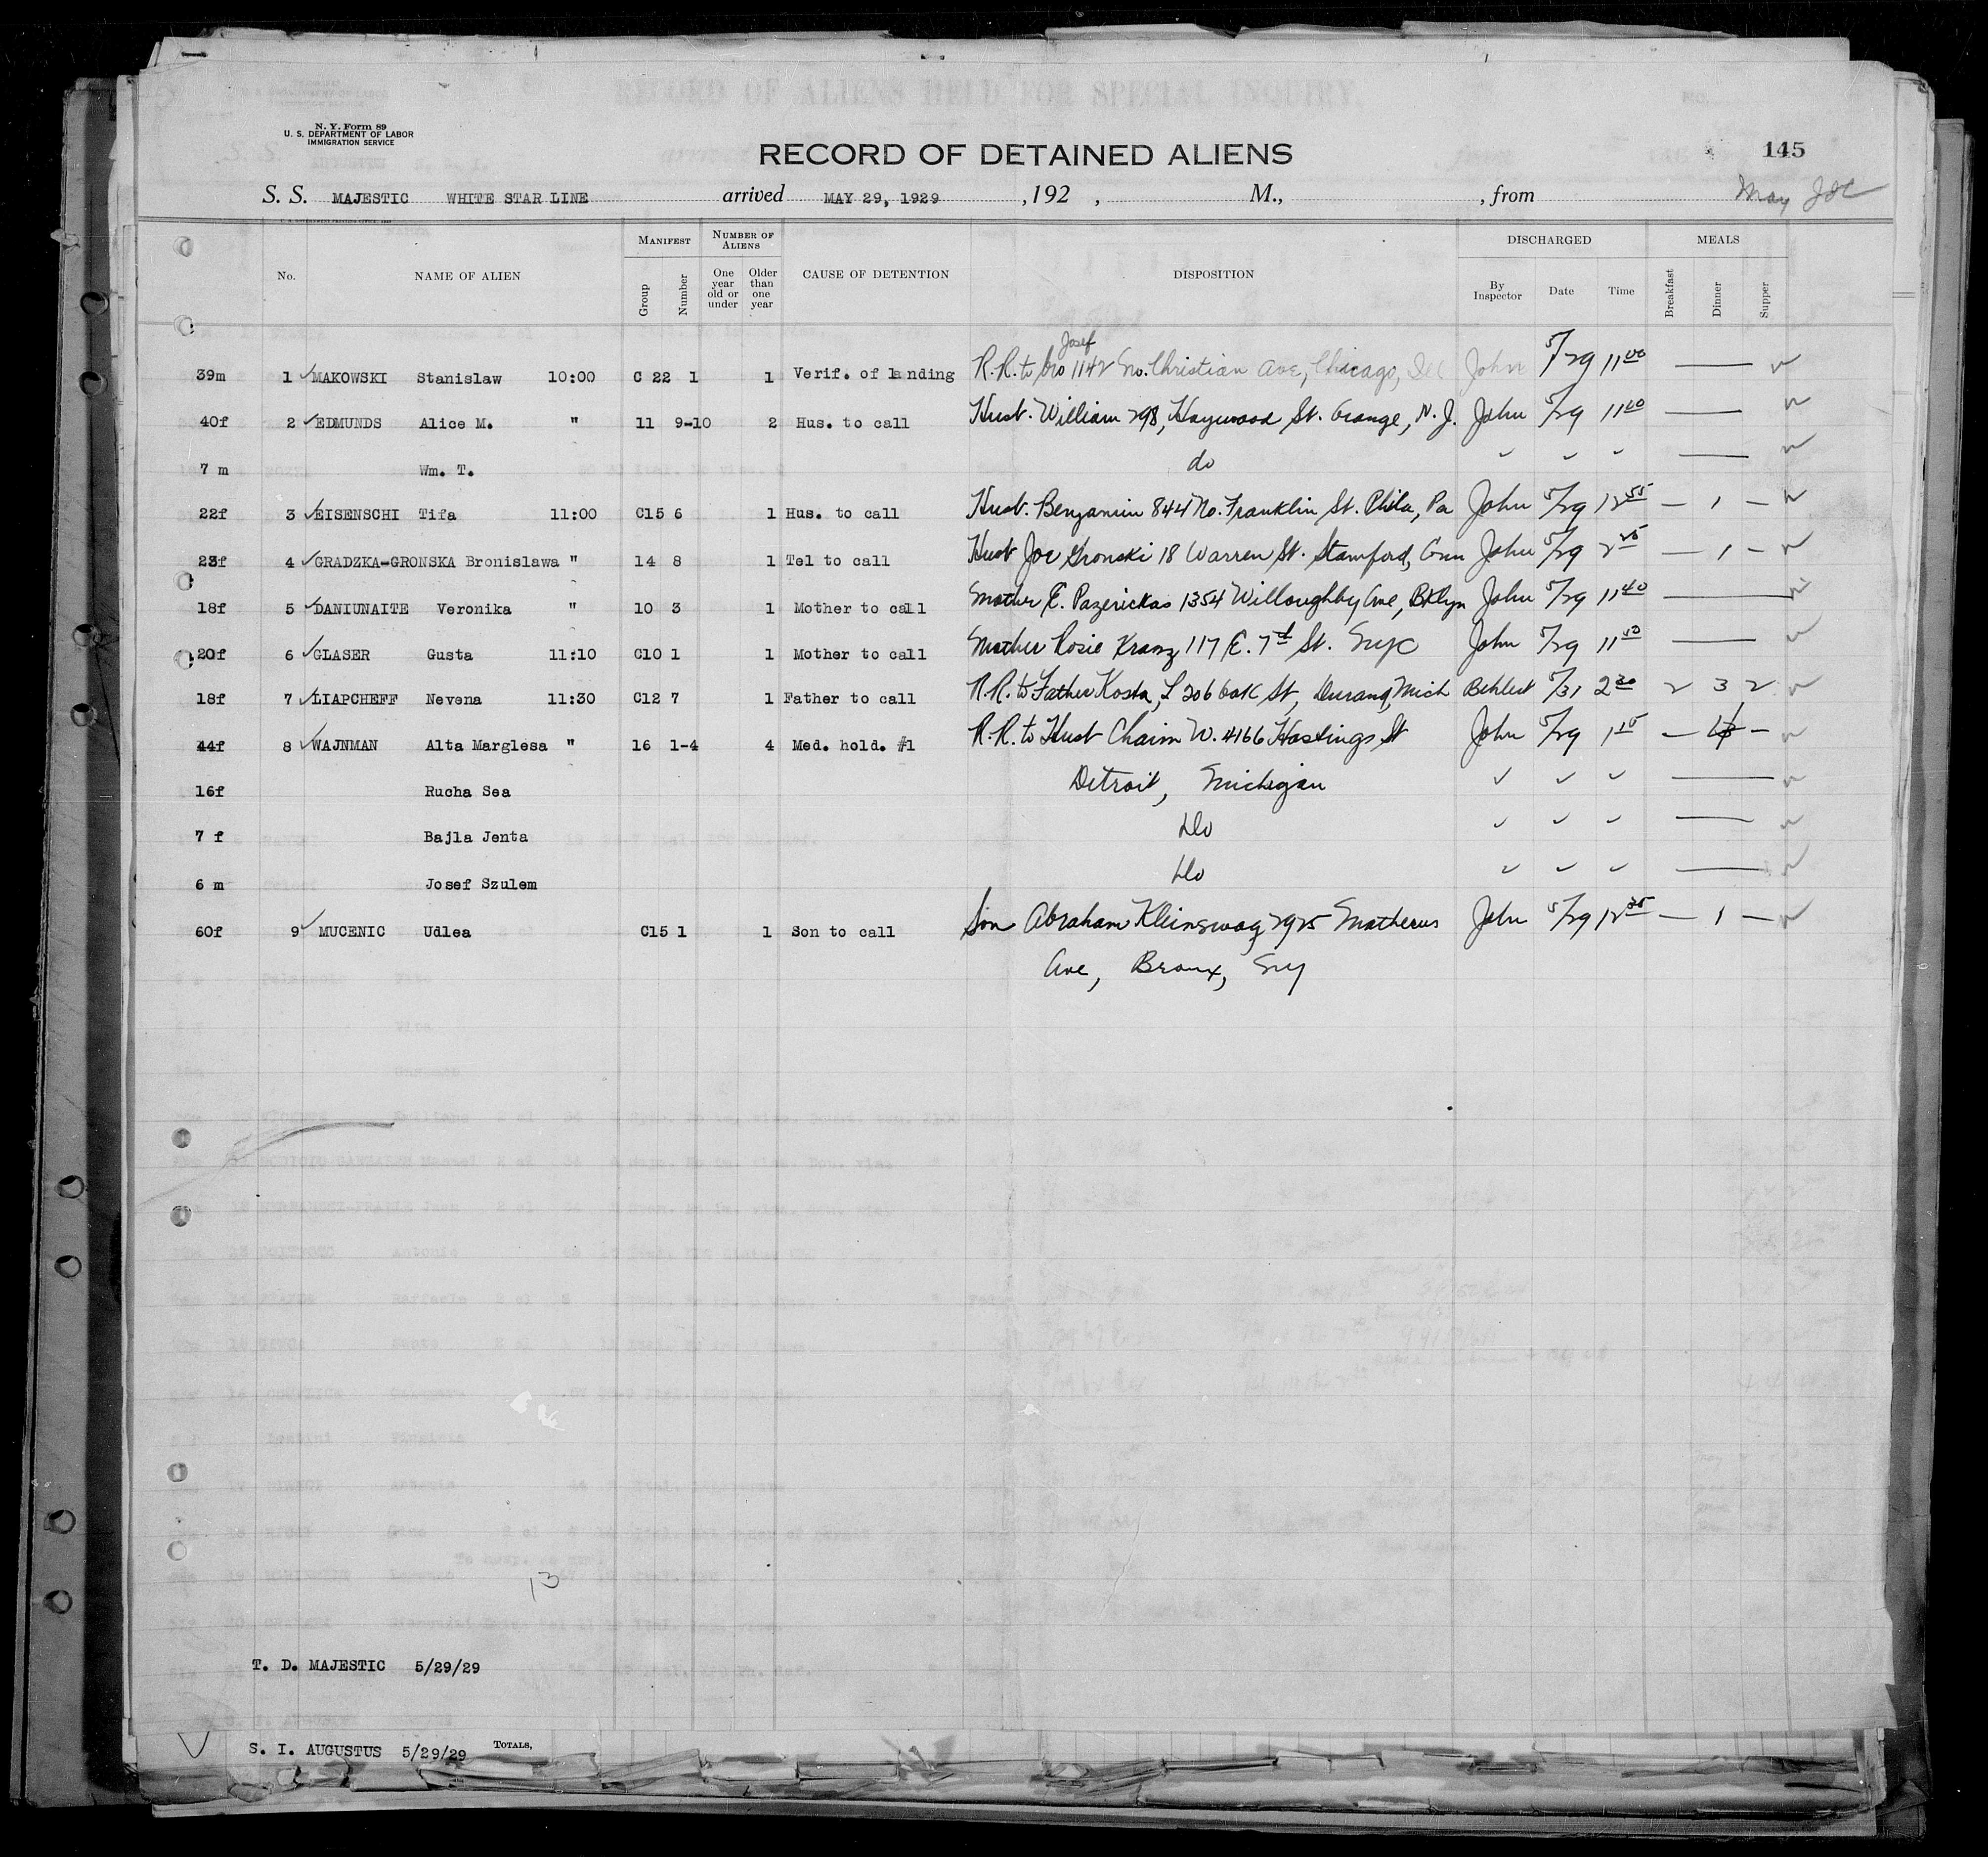 N. Y. Form 89
U. S. DEPARTMENT OF LABOR
IMMIGRATION SERVICE
RECORD OF ALIENS HELD FOR SPECIAL INQUIRY.
RECORD OF DETAINED ALIENS
145
S. S. MAJESTIC WHITE STAR LINE arrived MAY 29, 1929 , 192 , M., , from May
No. NAME OF ALIEN MANIFEST Group Number NUMBER OF ALIENS One year old or under Older than one year CAUSE OF DETENTION DISPOSITION DISCHARGED By Inspector Date Time MEALS Breakfast Dinner Supper
Josef
39m 1 ✓ MAKOWSKI Stanislaw 10:00 C 22 1 1 Verif. of landing R.R. to bro 1142 No. Christian Ave, Chicago, Ill John 5/29 11 00 —
40f 2 ✓ EDMUNDS Alice M. " 11 9-10 2 Hus. to call Husb. William 298, Haywood St. Orange, N. J. John 5/29 11 00 —
7 m Wm. T. do ✓ ✓ ✓ —
22f 3 ✓ EISENSCHI Tifa 11:00 C15 6 1 Hus. to call Husb. Benjamin 844 No. Franklin St. Phila, Pa John 5/29 12 55 — 1 —
23f 4 ✓ GRADZKA-GRONSKA Bronislawa " 14 8 1 Tel to call Husb Joe Gronski 18 Warren St. Stamford, Conn John 5/29 — 1 —
18f 5 ✓ DANIUNAITE Veronika " 10 3 1 Mother to call Mother E. Pazerickas 1354 Willoughby Ave, Bklyn John 5/29 11 40 —
20f 6 ✓ GLASER Gusta 11:10 C10 1 1 Mother to call Mother Rosie Kranz 117 E. 7th St. NYC John 5/29 —
18f 7 ✓ LIAPCHEFF Nevena 11:30 C12 7 1 Father to call R.R. to Father Kosta, L 206 Oak St, Durand, Mich 5/31 2 30 2 3 2
44f 8 ✓ WAJNMAN Alta Marglesa " 16 1-4 4 Med. hold. #1 R.R. to Husb Chaim W. 4166 Hastings St John 5/29 — —
16f Rucha Sea Detroit, Michigan ✓ ✓ ✓ —
7 f Bajla Jenta Do ✓ ✓ ✓ —
6 m Josef Szulem Do ✓ ✓ ✓ —
60f 9 ✓ MUCENIC Udlea C15 1 1 Son to call Son Abraham Kleinswag 2925 Mathews John 5/29 — 1 —
Ave, Bronx, NY
13
T. D. MAJESTIC 5/29/29
S. I. AUGUSTUS 5/29/29 TOTALS,